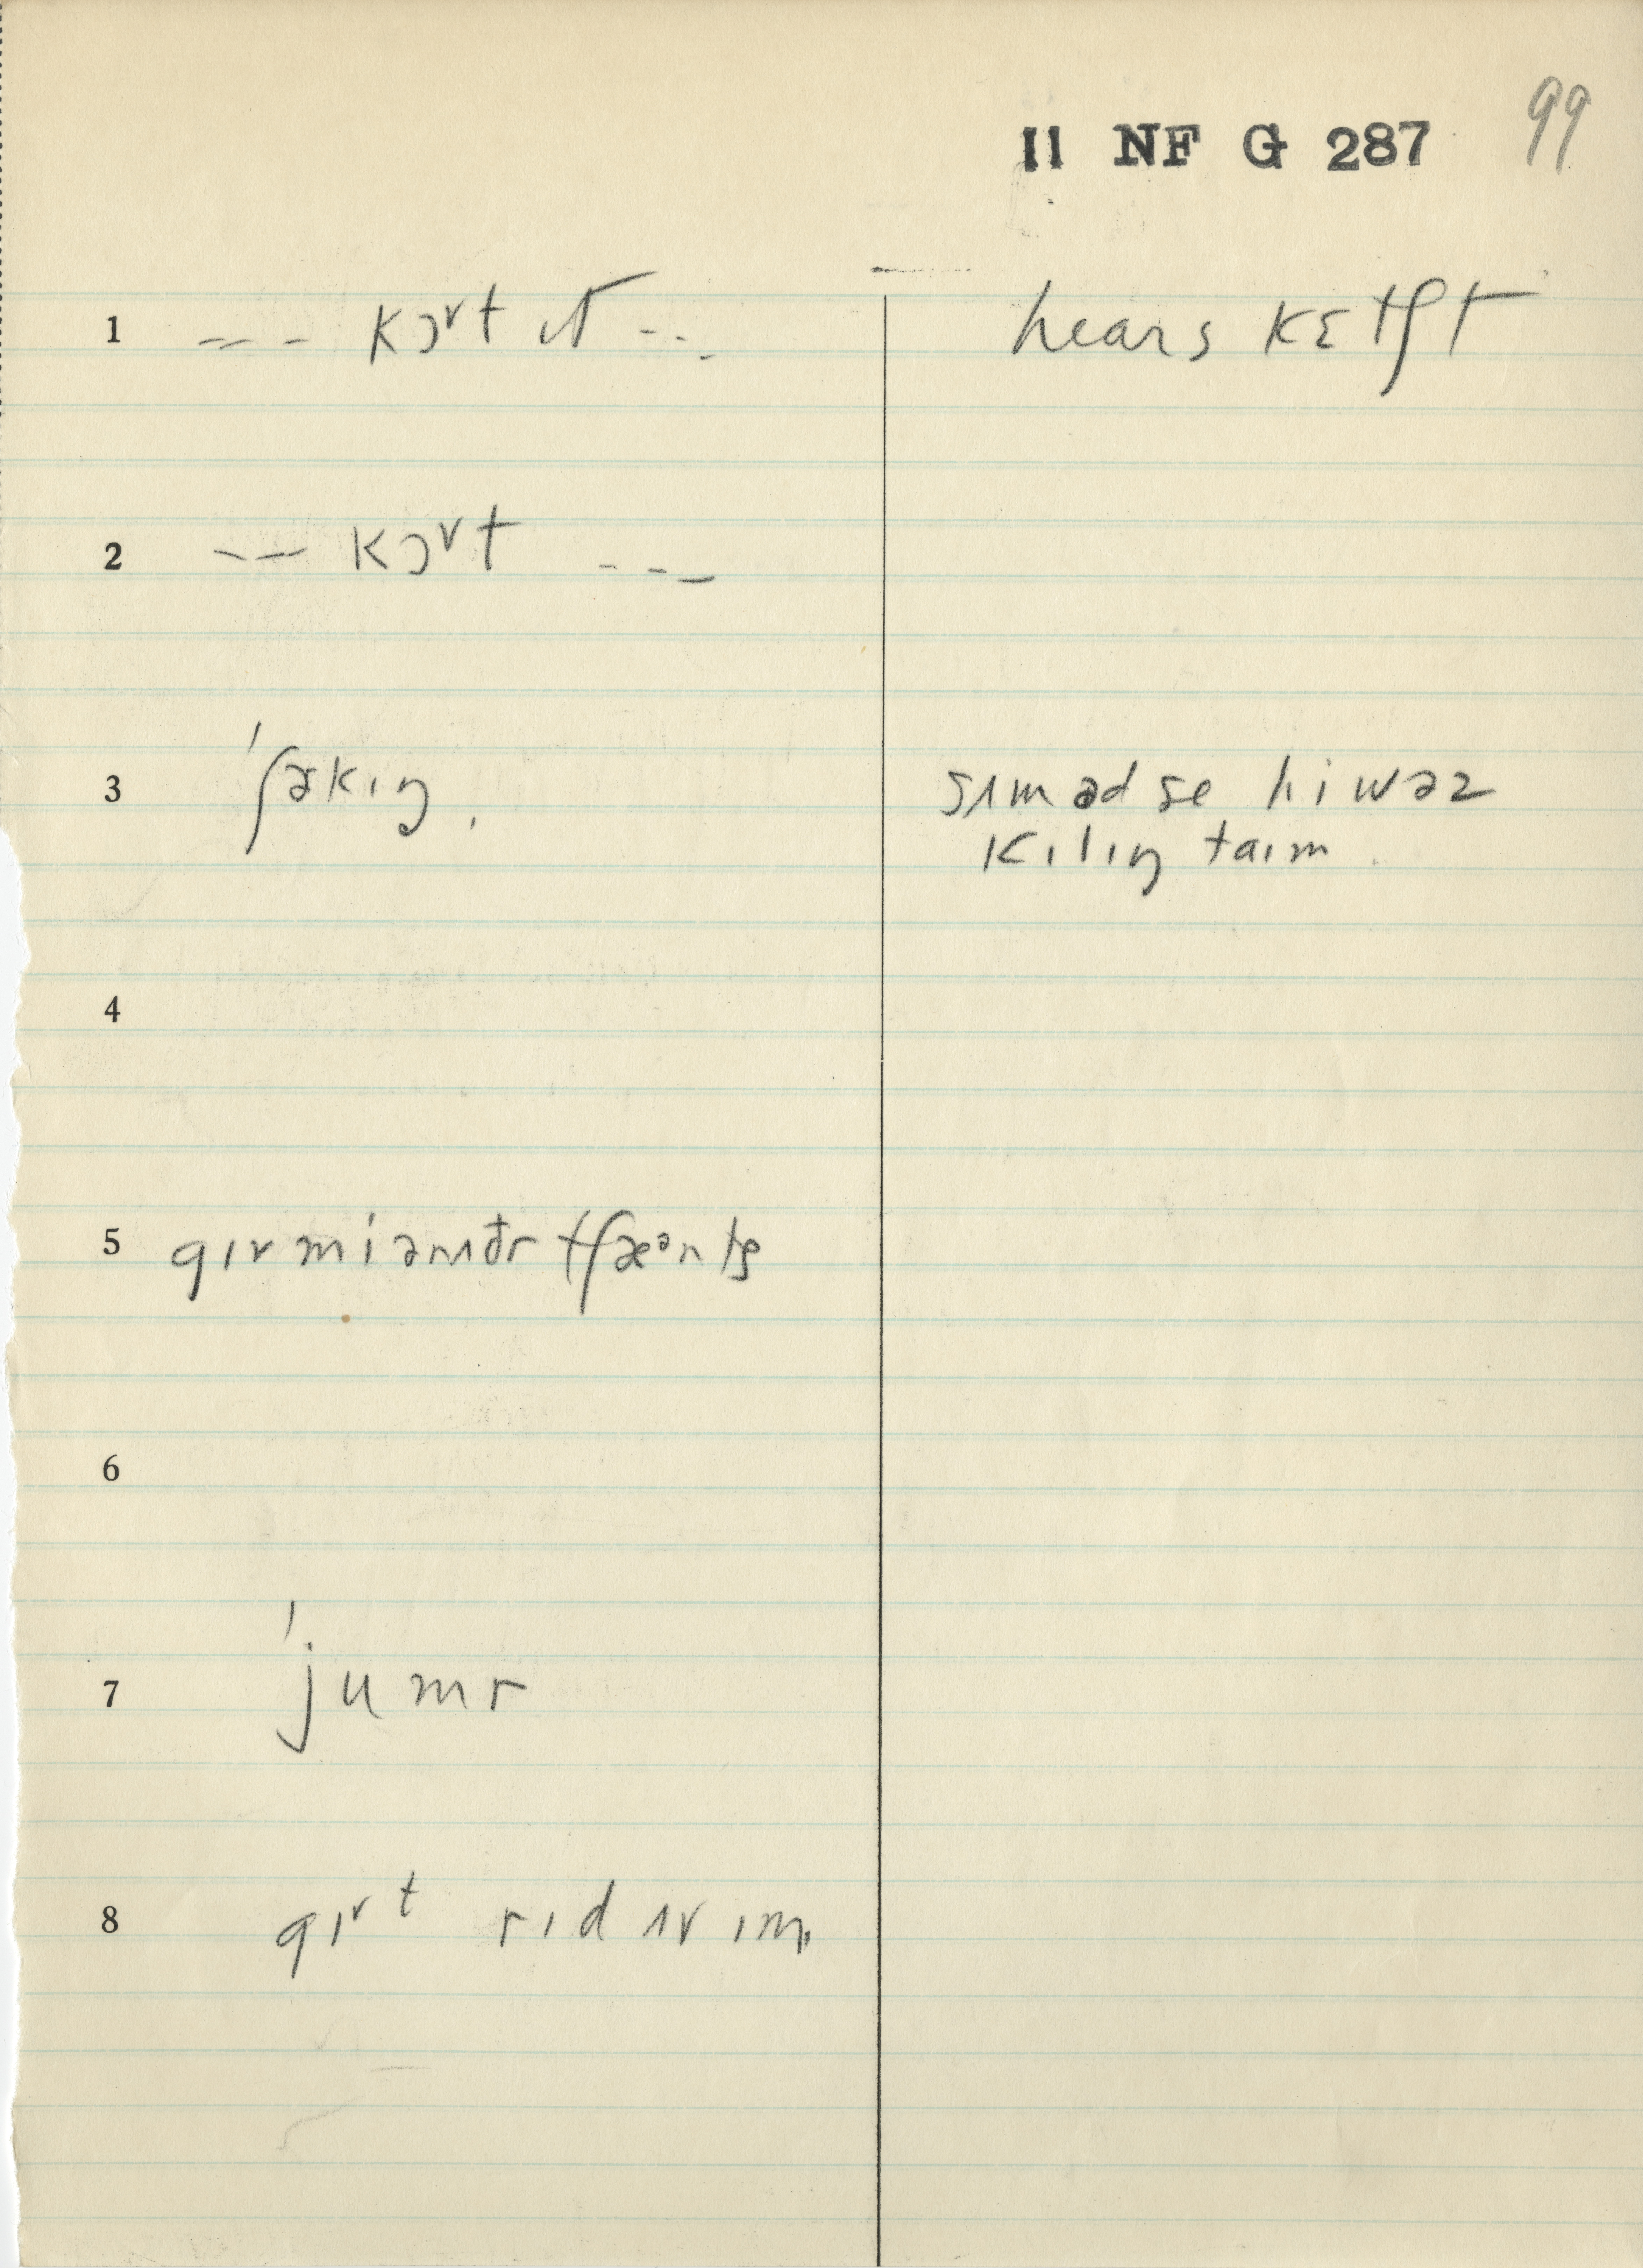 II NF G 287 99
1 --- kɔᵛt ɪt --- hears kɛtʃt
2 -- kɔᵛt ---
3 ˈʃəkɪŋ. sʌm əd se hi wəz
kɪlɪŋ taɪm.
4
5
6
7 ˈjumr
8 gɪᵛt rɪd ʌv ɪm